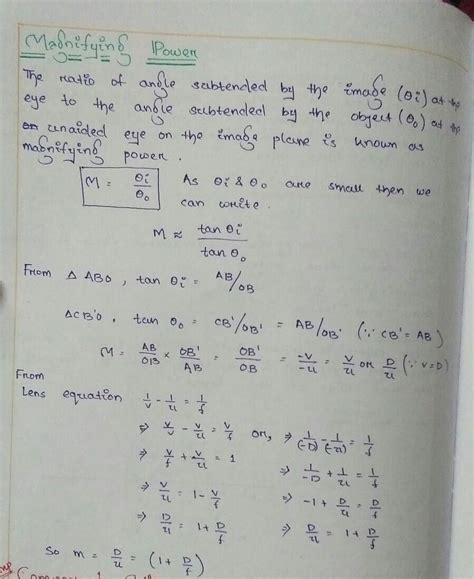 Magnifying Power
The ratio of angle subtended by the image (θi) at the
eye to the angle subtended by the object (θo) at the
unaided eye on the image plane is known as
magnifying power.
M = θi/θo As θi & θo are small then we
can write.
M ≈ tan θi / tan θo
From △ ABO, tan θi = AB/OB
△CB'O, tan θo = CB'/OB' = AB/OB' (∵ CB' = AB)
M = AB/OB × OB'/AB = OB'/OB = -v/-u = v/u or D/u (∵ v=D)
From
Lens equation 1/v - 1/u = 1/f
⇒ v/v - v/u = v/f or, ⇒ 1/(-D) - 1/(-u) = 1/f
⇒ v/f + v/u = 1 ⇒ 1/-D + 1/u = 1/f
⇒ v/u = 1 - v/f ⇒ -1 + D/u = D/f
⇒ D/u = 1 + D/f ⇒ D/u = 1 + D/f
So m = D/u = (1 + D/f)